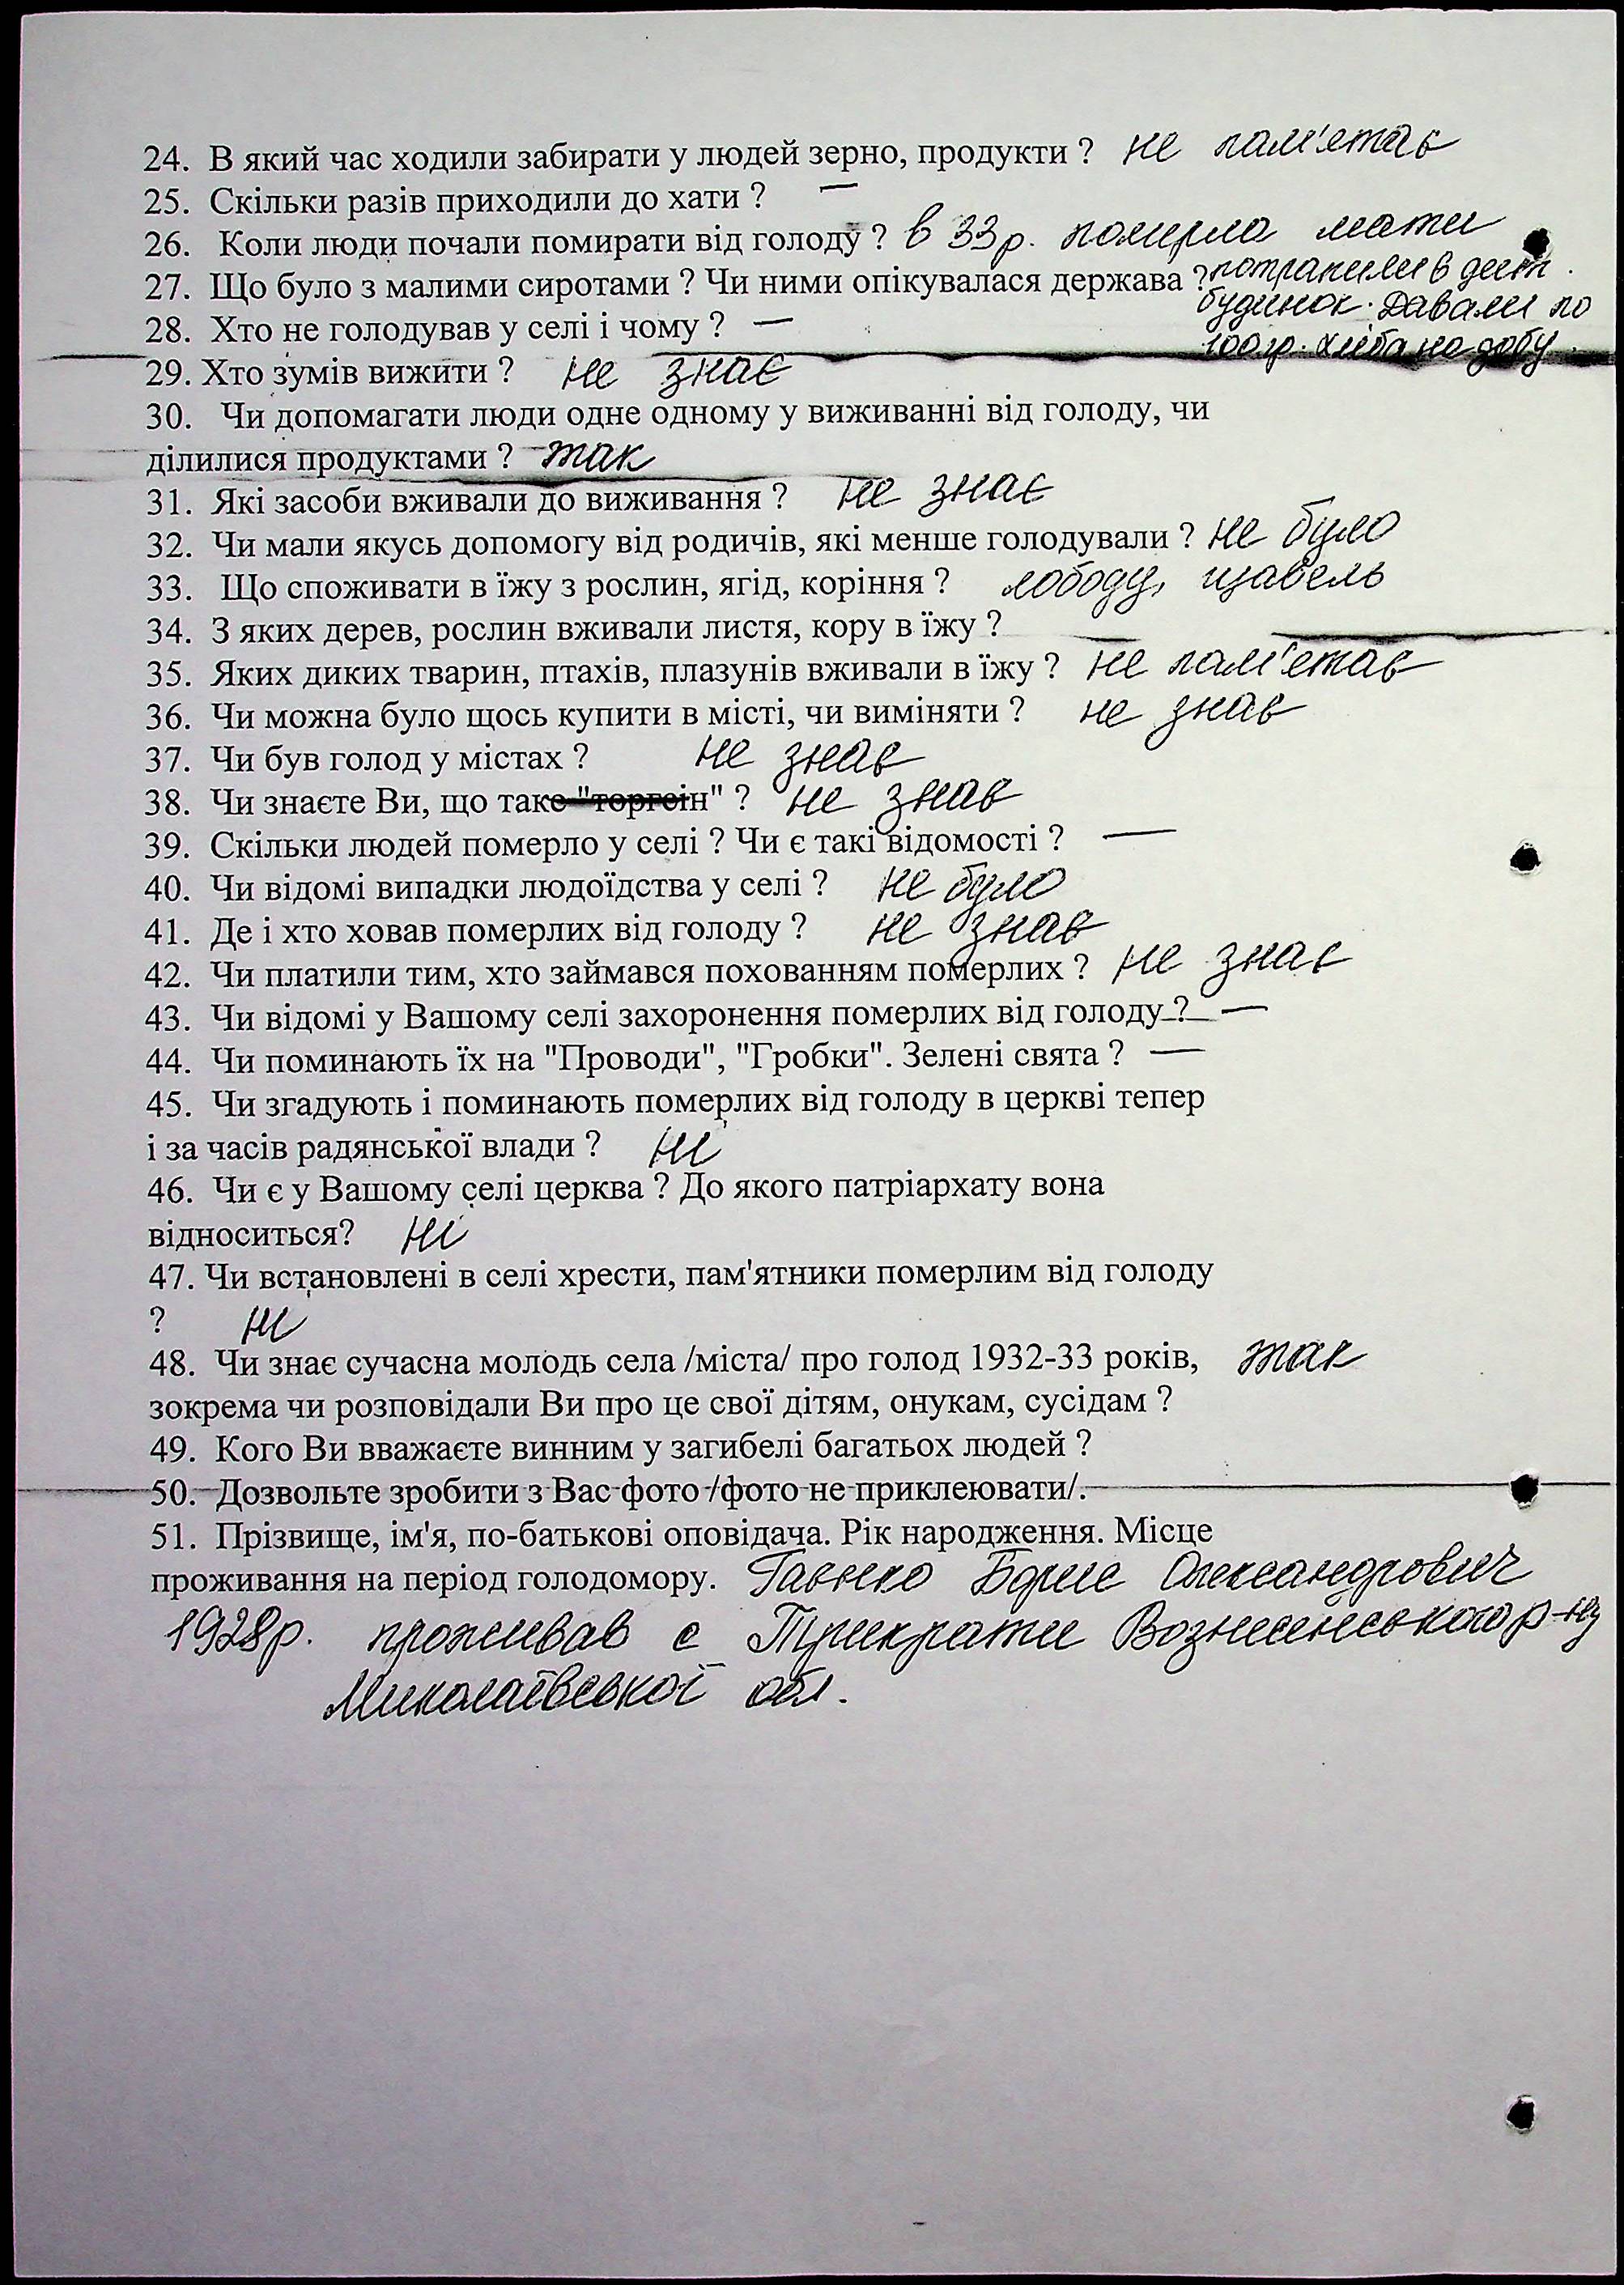 24. В який час ходили забирати у людей зерно, продукти ? не пам'єтає
25. Скільки разів приходили до хати ? —
26. Коли люди почали помирати від голоду ? в 33 р. померла мати
27. Що було з малими сиротами ? Чи ними опікувалася держава ? потрапили в дит.
будинок. Давали по
28. Хто не голодував у селі і чому ? —
100 гр. хліба на добу.
29. Хто зумів вижити ? не знає
30. Чи допомагати люди одне одному у виживанні від голоду, чи
ділилися продуктами ? так
31. Які засоби вживали до виживання ? не знає
32. Чи мали якусь допомогу від родичів, які менше голодували ? не було
33. Що споживати в їжу з рослин, ягід, коріння ? лободу, щавель
34. З яких дерев, рослин вживали листя, кору в їжу ? —
35. Яких диких тварин, птахів, плазунів вживали в їжу ? не пам'єтає
36. Чи можна було щось купити в місті, чи виміняти ? не знає
37. Чи був голод у містах ? не знає
38. Чи знаєте Ви, що таке "торгсін" ? не знає
39. Скільки людей померло у селі ? Чи є такі відомості ? —
40. Чи відомі випадки людоїдства у селі ? не було
41. Де і хто ховав померлих від голоду ? не знає
42. Чи платили тим, хто займався похованням померлих ? не знає
43. Чи відомі у Вашому селі захоронення померлих від голоду ? —
44. Чи поминають їх на "Проводи", "Гробки". Зелені свята ? —
45. Чи згадують і поминають померлих від голоду в церкві тепер
і за часів радянської влади ? ні
46. Чи є у Вашому селі церква ? До якого патріархату вона
відноситься? ні
47. Чи встановлені в селі хрести, пам'ятники померлим від голоду
? ні
48. Чи знає сучасна молодь села /міста/ про голод 1932-33 років, так
зокрема чи розповідали Ви про це свої дітям, онукам, сусідам ?
49. Кого Ви вважаєте винним у загибелі багатьох людей ?
50. Дозвольте зробити з Вас фото /фото не приклеювати/.
51. Прізвище, ім'я, по-батькові оповідача. Рік народження. Місце
проживання на період голодомору. Борис Олександрович
1928р. проживав с Трикрати Вознесенського р-ну
Миколаївської обл.